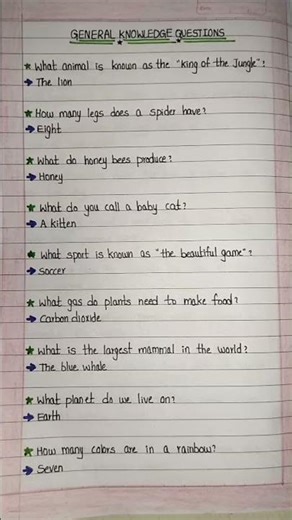 GENERAL KNOWLEDGE QUESTIONS
What animal is known as the "king of the Jungle"?
The lion
How many legs does a spider have?
Eight
What do honey bees produce?
Honey
What do you call a baby cat?
A kitten
What sport is known as "the beautiful game"?
Soccer
What gas do plants need to make food?
Carbon dioxide
What is the largest mammal in the world?
The blue whale
What planet do we live on?
Earth
How many colors are in a rainbow?
Seven